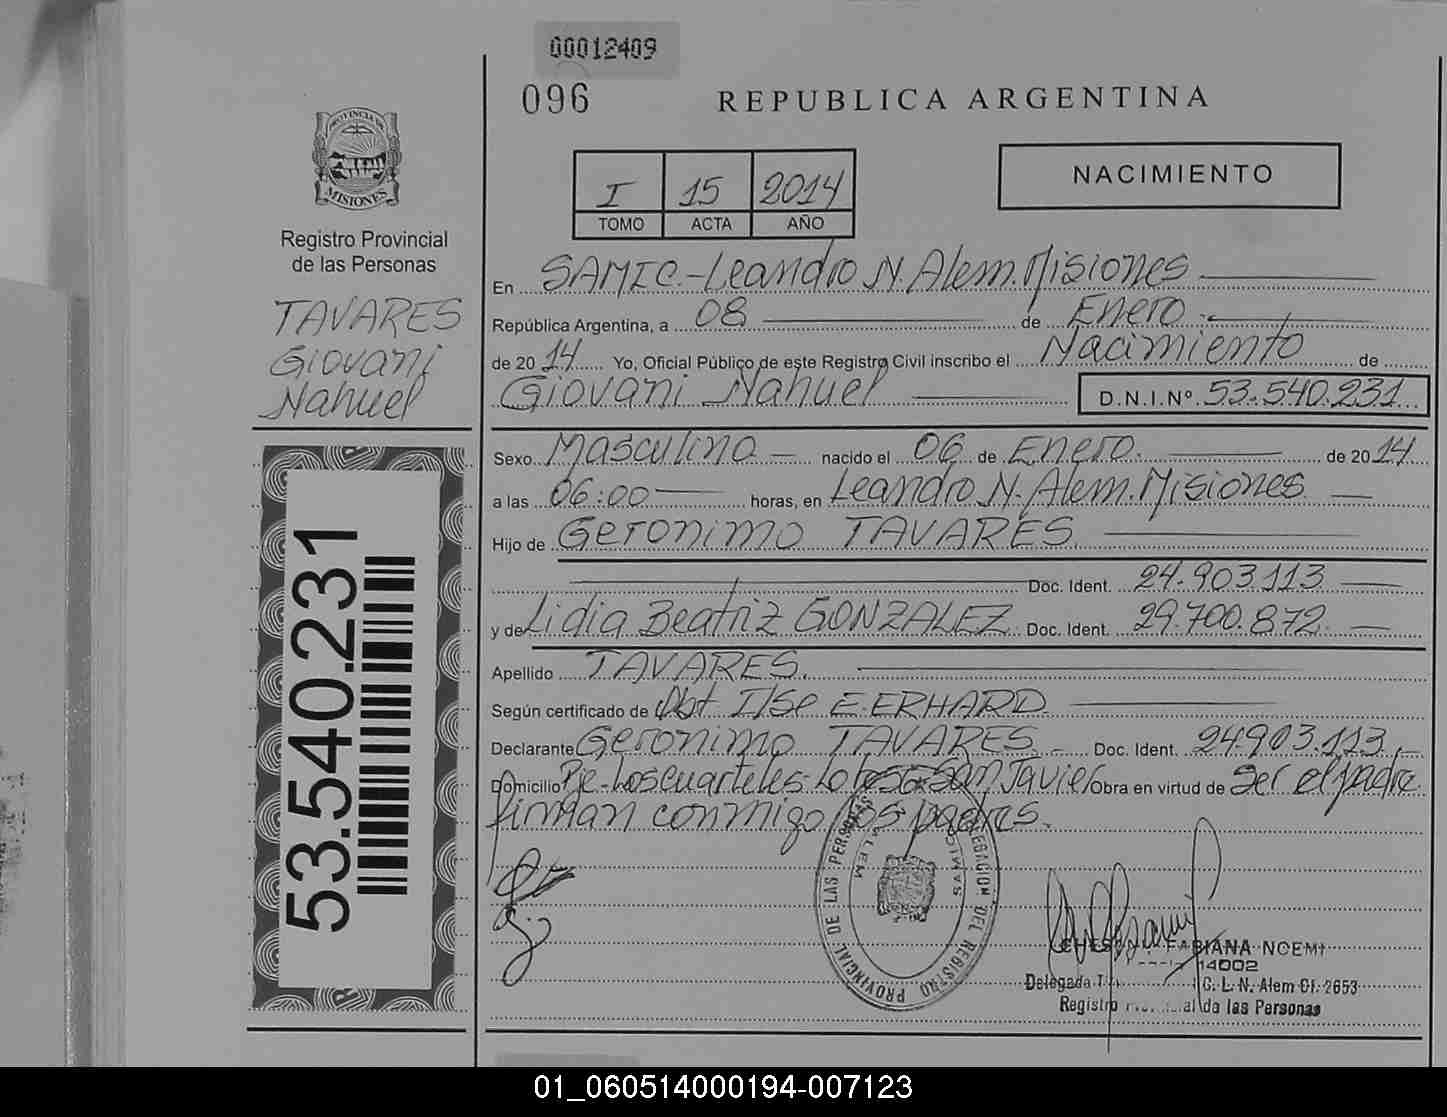 00012409
096
REPUBLICA ARGENTINA
PROVINCIA DE
MISIONES
Registro Provincial
de las Personas
TAVARES
Giovani
Nahuel
53.540.231
I 15 2014
TOMO ACTA AÑO
NACIMIENTO
En SAMIC.-Leandro N. Alem. Misiones
República Argentina, a 08 de Enero
de 2014 Yo, Oficial Público de este Registro Civil inscribo el Nacimiento de
Giovani Nahuel D.N.I.Nº. 53.540.231
Sexo Masculino nacido el 06 de Enero. de 2014
a las 06:00 horas, en Leandro N. Alem. Misiones
Hijo de Geronimo TAVARES.
Doc. Ident. 24.903.113
y de Lidia Beatriz GONZALEZ Doc. Ident. 29.700.872.
Apellido TAVARES.
Según certificado de Obst Ilse E. ERHARD.
Declarante Geronimo TAVARES Doc. Ident. 24.903.113
Domicilio Pje-Los cuarteles- San Javier Obra en virtud de Ser el padre
firman conmigo los padres.
DELEGACION DEL REGISTRO PROVINCIAL DE LAS PERSONAS
ALEM
MISIONES
FABIANA NOEMI
14002
Delegada C. L. N. Alem Cf. 2653
Registro de las Personas
01_060514000194-007123